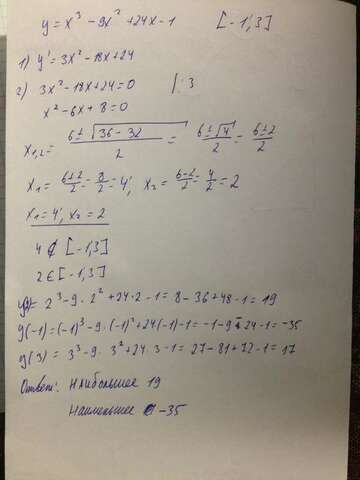 y = x³ - 9x² + 24x - 1 [-1,3]
1) y' = 3x² - 18x + 24
2) 3x² - 18x + 24 = 0 |: 3
x² - 6x + 8 = 0
x₁,₂ = (6 ± √(36 - 32))/2 = (6 ± √4)/2 = (6 ± 2)/2
x₁ = (6+2)/2 = 8/2 = 4; x₂ = (6-2)/2 = 4/2 = 2
x₁ = 4; x₂ = 2
4 ∉ [-1,3]
2 ∈ [-1,3]
y(2) = 2³ - 9 · 2² + 24 · 2 - 1 = 8 - 36 + 48 - 1 = 19
y(-1) = (-1)³ - 9 · (-1)² + 24(-1) - 1 = -1 - 9 - 24 - 1 = -35
y(3) = 3³ - 9 · 3² + 24 · 3 - 1 = 27 - 81 + 72 - 1 = 17
Ответ: Наибольшее 19
Наименьшее -35